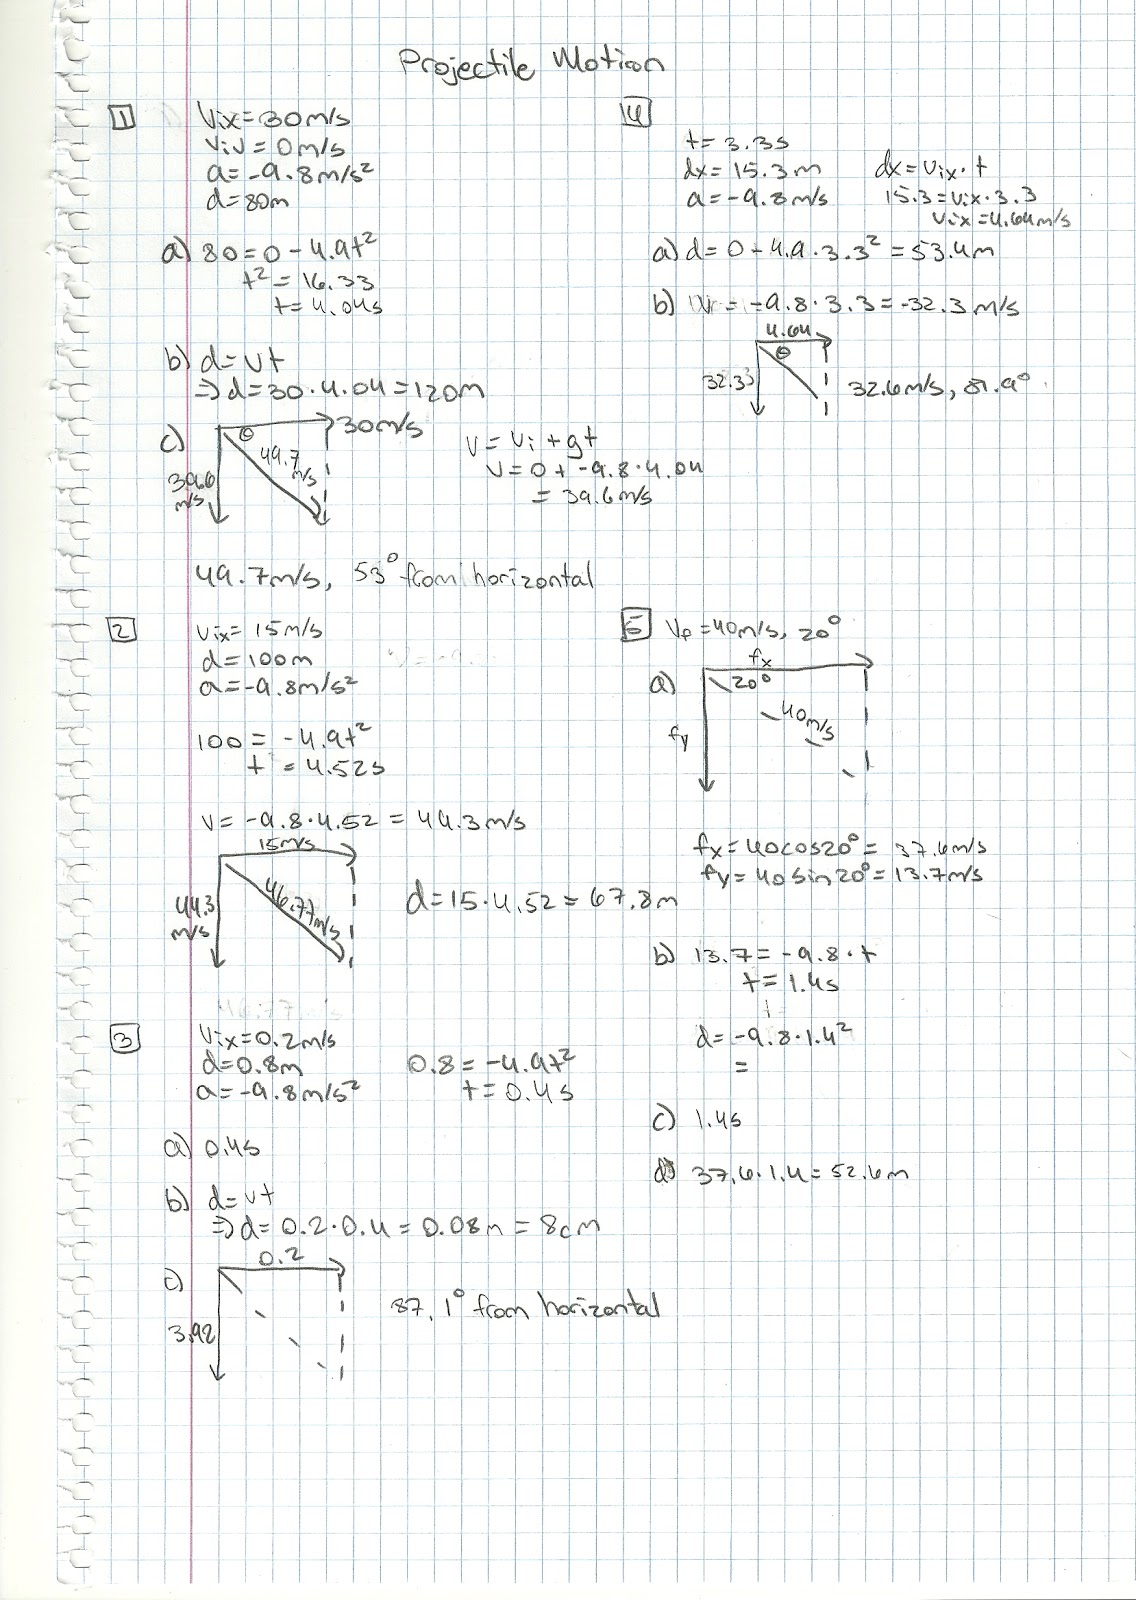 Projectile Motion
1
Vix = 30m/s
Viv = 0m/s
a = -9.8m/s²
d = 80m
a) 80 = 0 - 4.9t²
t² = 16.33
t = 4.04s
b) d = vt
⇒ d = 30·4.04 = 120m
c) 30m/s
θ
49.7 m/s
39.6 m/s
V = Vi + gt
V = 0 + -9.8·4.04
= 39.6m/s
49.7m/s, 53° from horizontal
2
Vix = 15m/s
d = 100m
a = -9.8m/s²
100 = -4.9t²
t = 4.52s
V = -9.8·4.52 = 44.3m/s
15m/s
44.3 m/s
46.77m/s
d = 15·4.52 = 67.8m
3
Vix = 0.2m/s
d = 0.8m
a = -9.8m/s²
0.8 = -4.9t²
t = 0.4s
a) 0.4s
b) d = vt
⇒ d = 0.2·0.4 = 0.08m = 8cm
c) 0.2
3.92
87.1° from horizontal
4
t = 3.3s
dx = 15.3m
a = -9.8m/s
dx = Vix·t
15.3 = Vix·3.3
Vix = 4.64m/s
a) d = 0 - 4.9·3.3² = 53.4m
b) = -9.8·3.3 = -32.3m/s
4.64
θ
32.33
32.6m/s, 81.9°
5
Vf = 40m/s, 20°
a) fx
20°
40m/s
fy
fx = 40cos20° = 37.6m/s
fy = 40sin20° = 13.7m/s
b) 13.7 = -9.8·t
t = 1.4s
d = -9.8·1.4²
=
c) 1.4s
d) 37.6·1.4 = 52.6m